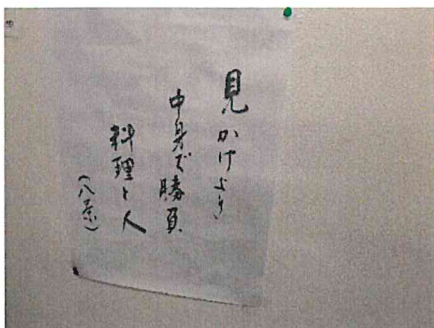 見かけより
中身で勝負
料理と人
(八景)